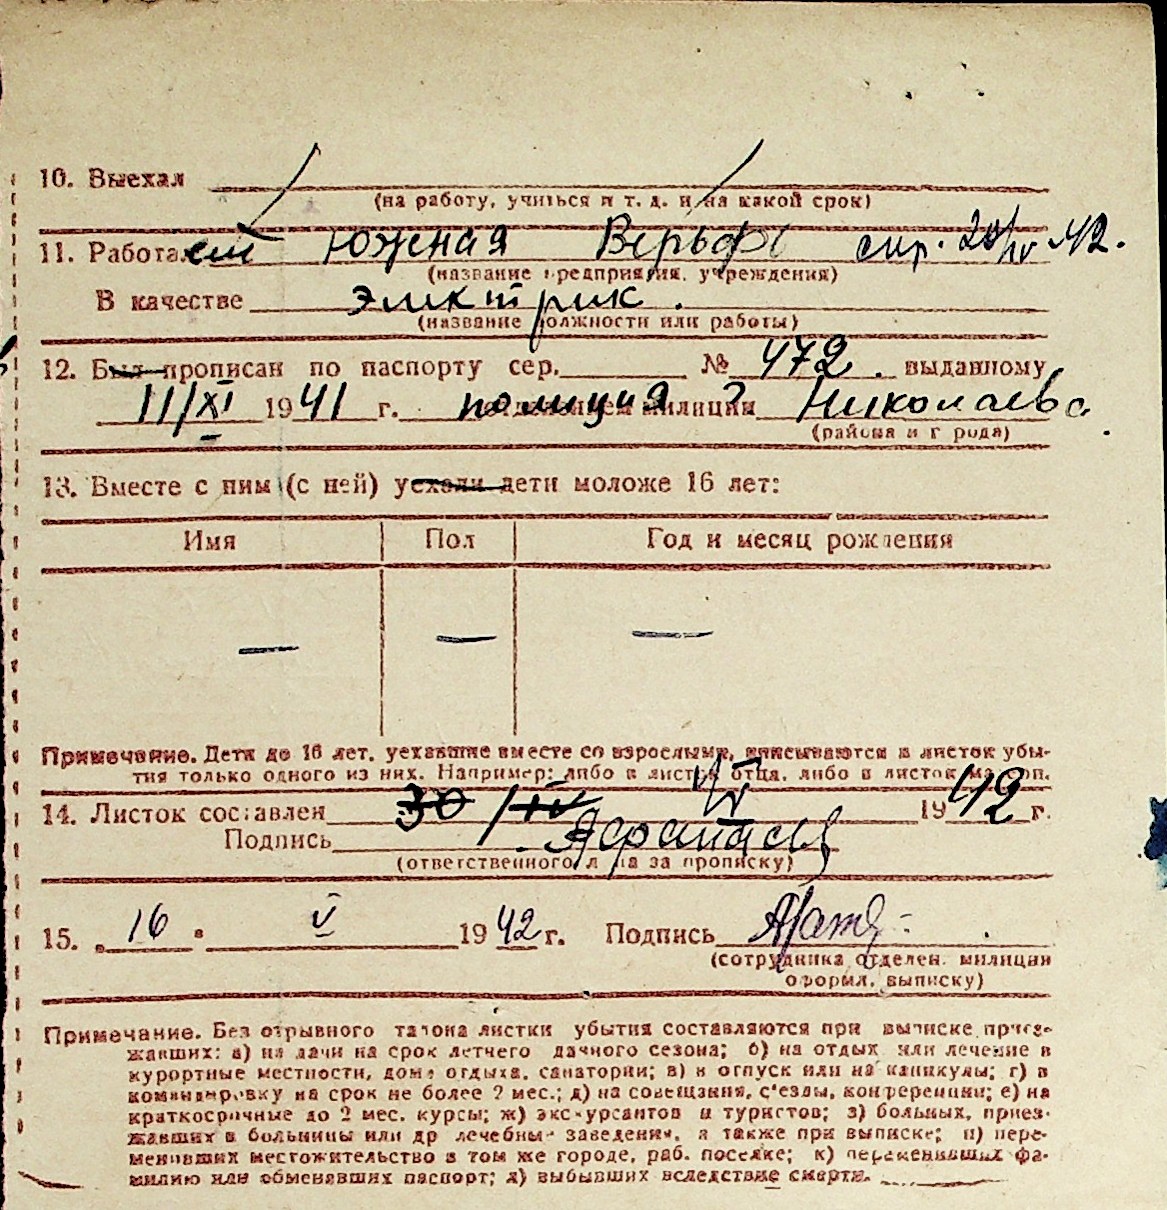 10. Выехал
(на работу, учиться и т. д. и на какой срок)
11. Работает Южная Верьфь спр. 20/IV 42.
(название предприятия, учреждения)
В качестве электрик.
(название должности или работы)
12. Был прописан по паспорту сер. № 472. выданному
11/XI 1941 г. полиция 2 отделением милиции Николаева
(района и города)
13. Вместе с ним (с ней) уехали дети моложе 16 лет:
Имя Пол Год и месяц рождения
— — —
Примечание. Дети до 16 лет, уехавшие вместе со взрослыми, вписываются в листок убы-
тия только одного из них. Например: либо в листок отца, либо в листок матери.
14. Листок составлен 30/IV V 1942 г.
Подпись
(ответственного лица за прописку)
15. „16" V 1942 г. Подпись
(сотрудника отделен. милиции
оформл. выписку)
Примечание. Без отрывного талона листки убытия составляются при выписке приез-
жавших: а) на дачи на срок летнего дачного сезона; б) на отдых или лечение в
курортные местности, дома отдыха, санатории; в) в отпуск или на каникулы; г) в
командировку на срок не более 2 мес.; д) на совещания, с'езды, конференции; е) на
краткосрочные до 2 мес. курсы; ж) экскурсантов и туристов; з) больных, приез-
жавших в больницы или др лечебные заведения, а также при выписке; и) пере-
менивших местожительство в том же городе, раб. поселке; к) переменивших фа-
милию или обменявших паспорт; л) выбывших вследствие смерти.